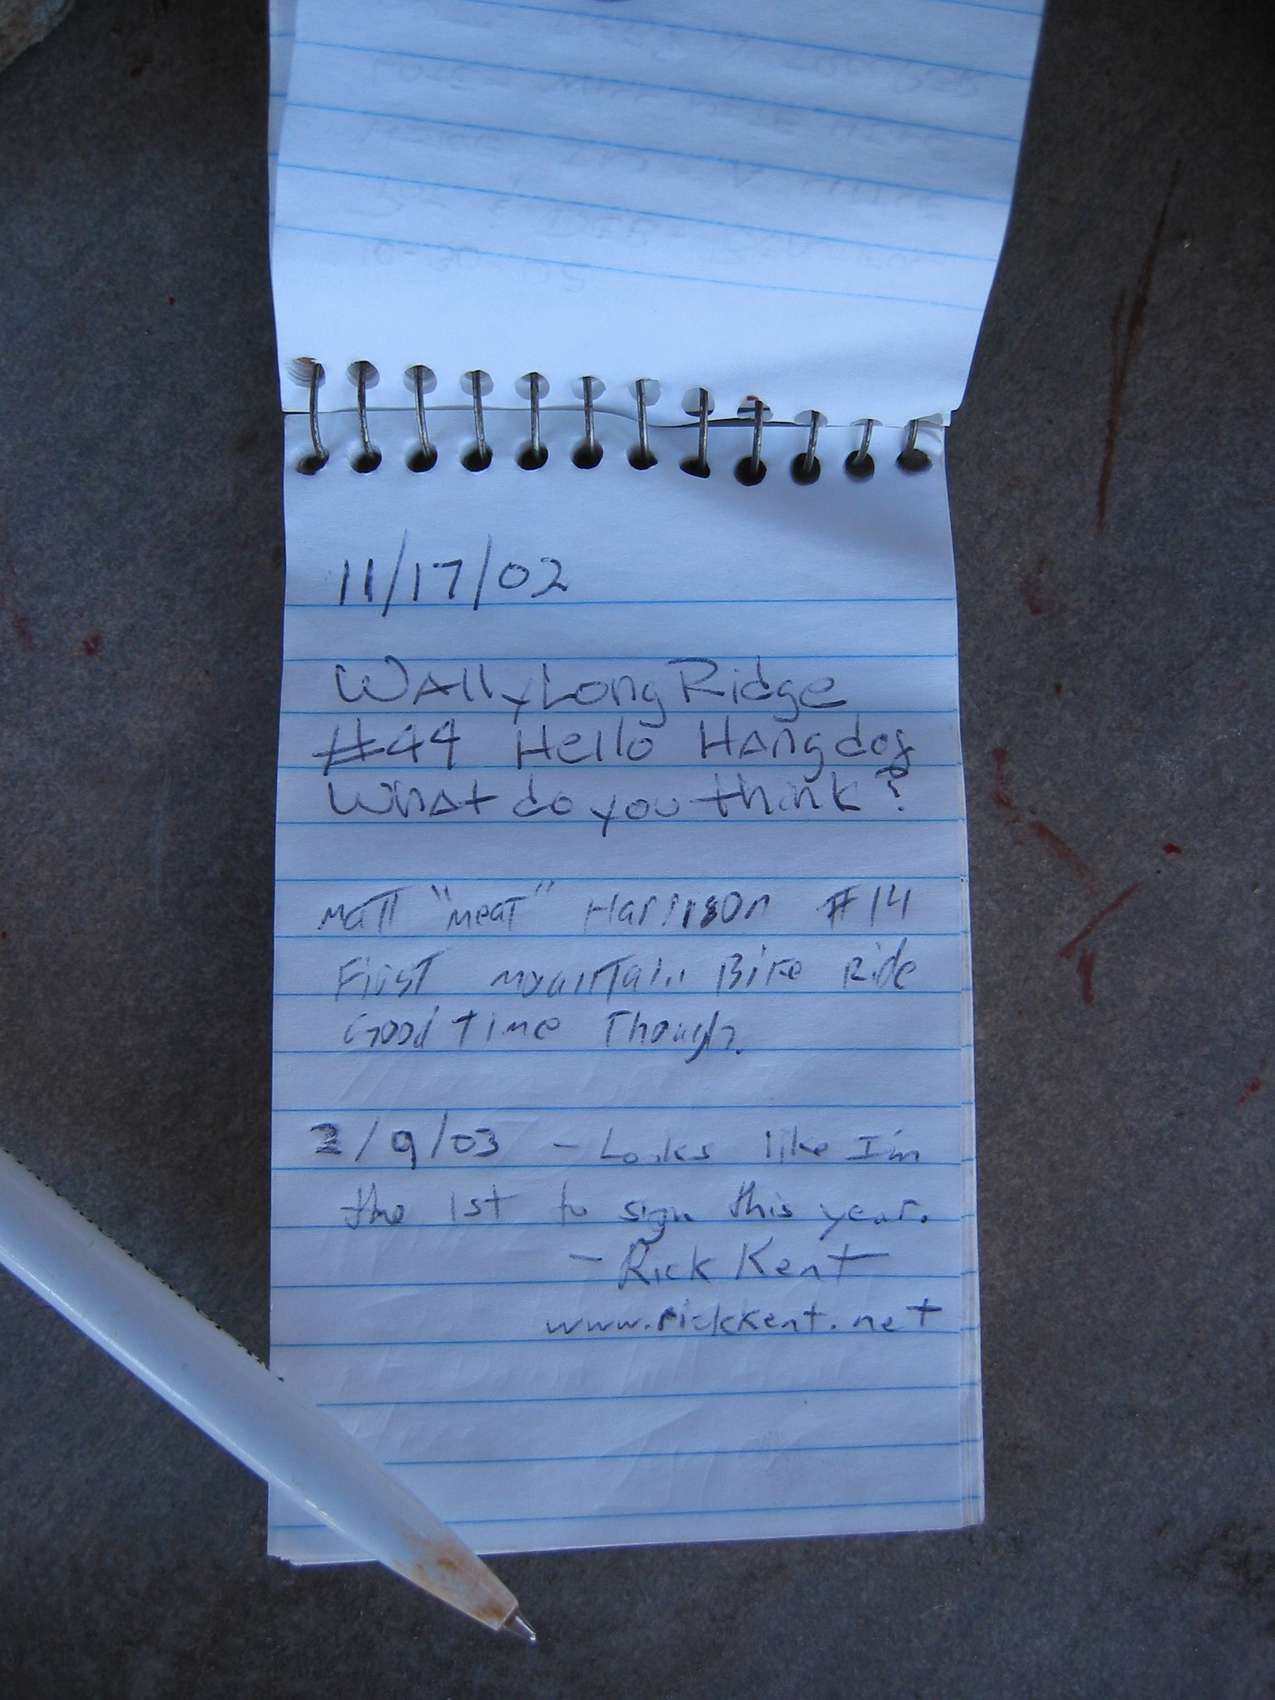 11/17/02
Wally Long Ridge
#44 Hello Hangdog
What do you think?
Matt "meat" Harrison #14
First mountain Bike Ride
Good time Though.
2/9/03 - Looks like I'm
the 1st to sign this year.
- Rick Kent
www.rickkent.net